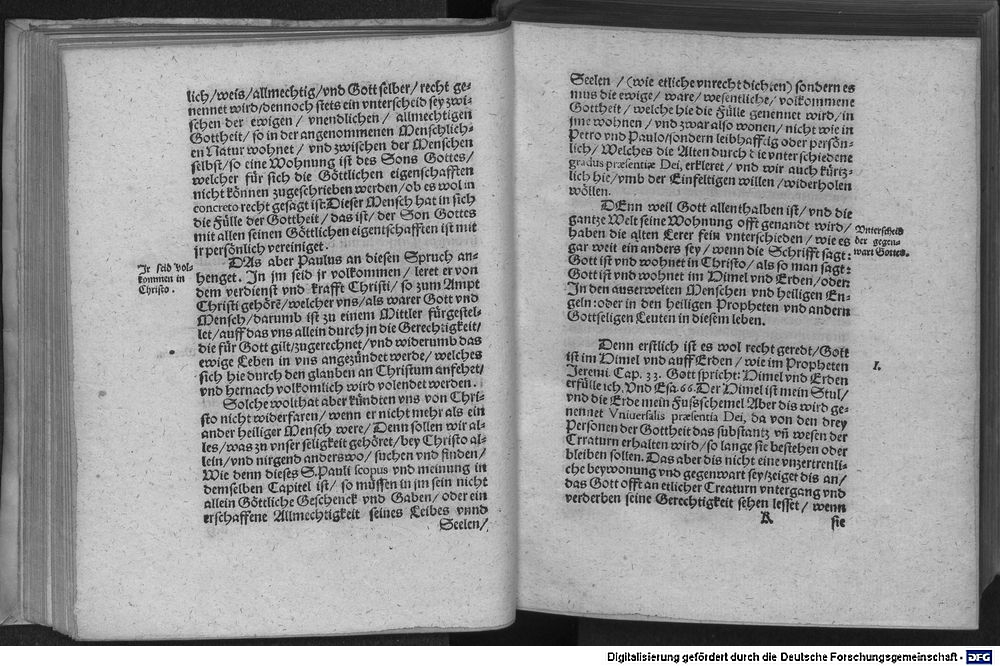 lich/weis/allmechtig/vnd Gott selber/ recht ge-
nennet wird/dennoch stets ein vnterscheid sey zwi-
schen der ewigen / vnendlichen / allmechtigen
Gottheit/ so in der angenommenen Menschlich-
en Natur wohnet / vnd zwischen der Menschen
selbst/so eine Wohnung ist des Sons Gottes/
welcher für sich die Göttlichen eigenschafften
nicht können zugeschrieben werden/ ob es wol in
concreto recht gesagt ist: Dieser Mensch hat in sich
die Fülle der Gottheit / das ist/ der Son Gottes
mit allen seinen Göttlichen eigentschafften ist mit
jr persönlich vereiniget.
Jr seid vol-
kommen in
Christo.
DAs aber Paulus an diesen Spruch an-
henget. Jn jm seid jr volkommen / leret er von
dem verdienst vnd krafft Christi/ so zum Ampt
Christi gehörẽ/welcher vns/als warer Gott vnd
Mensch/darumb ist zu einem Mittler fürgestel-
let/auff das vns allein durch jn die Gerechtigkeit/
die für Gott gilt/zugerechnet/vnd widerumb das
ewige Leben in vns angezündet werde/ welches
sich hie durch den glauben an Christum anfehet/
vnd hernach volkomlich wird volendet werden.
Solche wolthat aber kündten vns von Chri-
sto nicht widerfaren/ wenn er nicht mehr als ein
ander heiliger Mensch were/ Denn sollen wir al-
les/was zu vnser seligkeit gehöret/bey Christo al-
lein/vnd nirgend anderswo/ suchen vnd finden/
Wie denn dieses S. Pauli scopus vnd meinung in
demselben Capitel ist/ so müssen in jm sein nicht
allein Göttliche Geschenck vnd Gaben/ oder ein
erschaffene Allmechtigkeit seines Leibes vnnd
Seelen/
Seelen / (wie etliche vnrecht dichten) sondern es
mus die ewige/ ware/ wesentliche/ volkommene
Gottheit / welche hie die Fülle genennet wird/ in
jme wohnen / vnd zwar also wonen/ nicht wie in
Petro vnd Paulo/sondern leibhafftig oder persön-
lich/ Welches die Alten durch die vnterschiedene
gradus præsentiæ Dei, erkleret/ vnd wir auch kürtz-
lich hie/vmb der Einfeltigen willen/widerholen
wöllen.
DEnn weil Gott allenthalben ist/ vnd die
gantze Welt seine Wohnung offt genandt wird/
haben die alten Lerer fein vnterschieden/ wie es
gar weit ein anders sey / wenn die Schrifft sagt:
Gott ist vnd wohnet in Christo/ als so man sagt:
Gott ist vnd wohnet im Himel vnd Erden/oder:
Jn den auserwelten Menschen vnd heiligen En-
geln: oder in den heiligen Propheten vnd andern
Gottseligen Leuten in diesem leben.
Vnterscheid
der gegen-
wart Gottes.
Denn erstlich ist es wol recht geredt/Gott
ist im Himel vnd auff Erden / wie im Propheten
Jeremi. Cap. 33. Gott spricht: Himel vnd Erden
erfülle ich. Vnd Esa. 66. Der Himel ist mein Stul/
vnd die Erde mein Fußschemel Aber dis wird ge-
nennet Vniuersalis præsentia Dei, da von den drey
Personen der Gottheit das substantz vñ wesen der
Creaturn erhalten wird/ so lange sie bestehen oder
bleiben sollen. Das aber dis nicht eine vnzertrenli-
che beywonung vnd gegenwart sey/zeiget dis an/
das Gott offt an etlicher Creaturn vntergang vnd
verderben seine Gerechtigkeit sehen lesset/ wenn
I.
R
sie
Digitalisierung gefördert durch die Deutsche Forschungsgemeinschaft - DFG